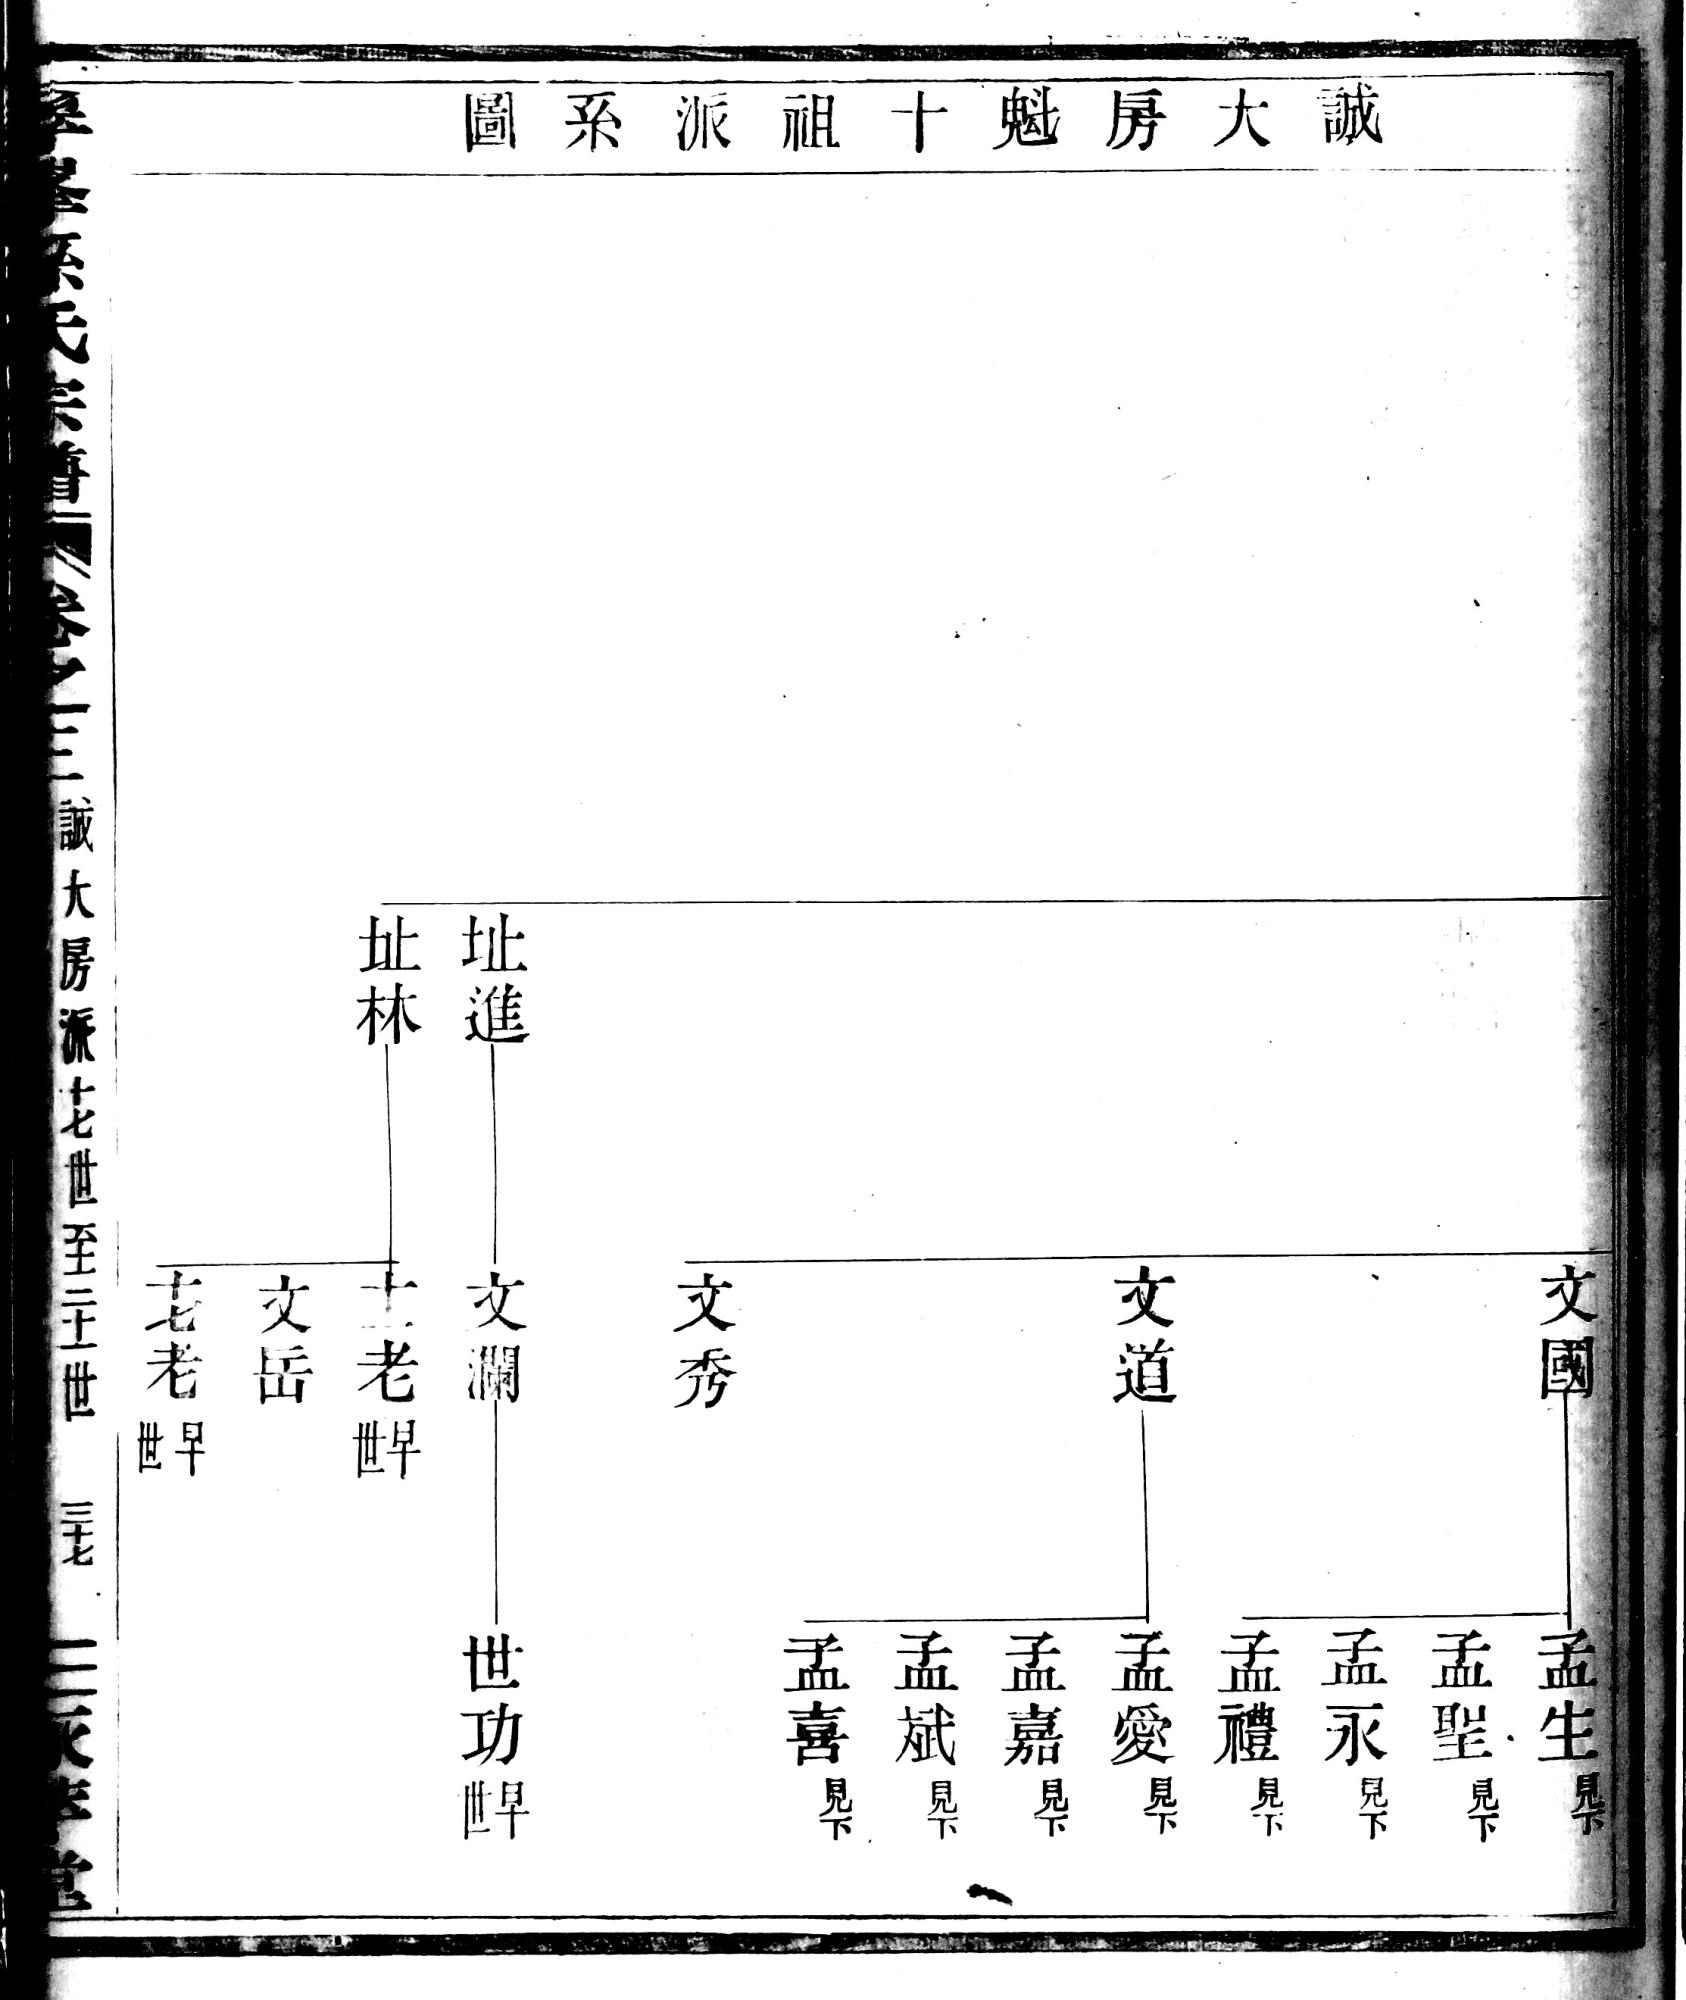 誠大房魁十祖派系圖
址進
址林
文國
文道
文秀
文瀾
老早世
文岳
十七老早世
孟生見下
孟聖見下
孟永見下
孟禮見下
孟愛見下
孟嘉見下
孟斌見下
孟喜見下
世功早世
孫氏宗譜
卷
誠大房派十七世至二十一世
三十七
堂